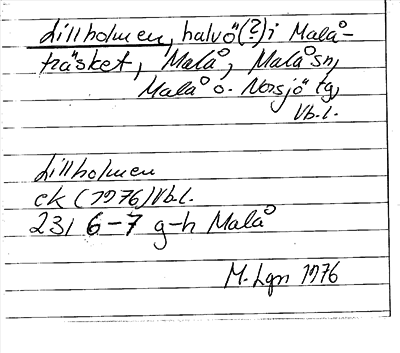 Lillholmen, halvö(?) i Malå-
träsket, Malå, Malå sn,
Malå o. Norsjö tg,
Vb.l.
Lillholmen
ek (1976) Vb.l.
23I 6-7 g-h Malå
M. Lgn 1976